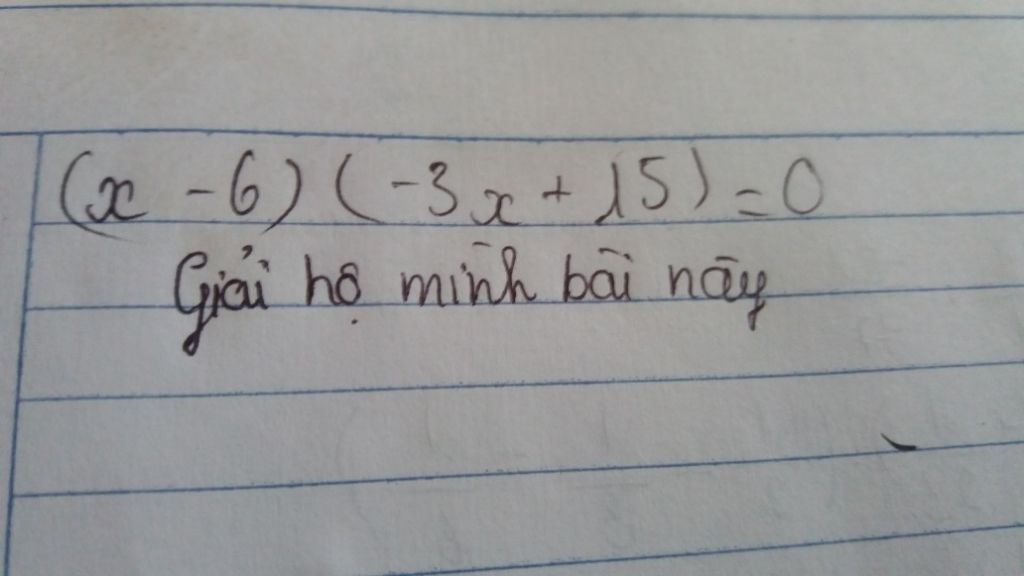 (x - 6) (-3x + 15) = 0
Giải hộ mình bài này